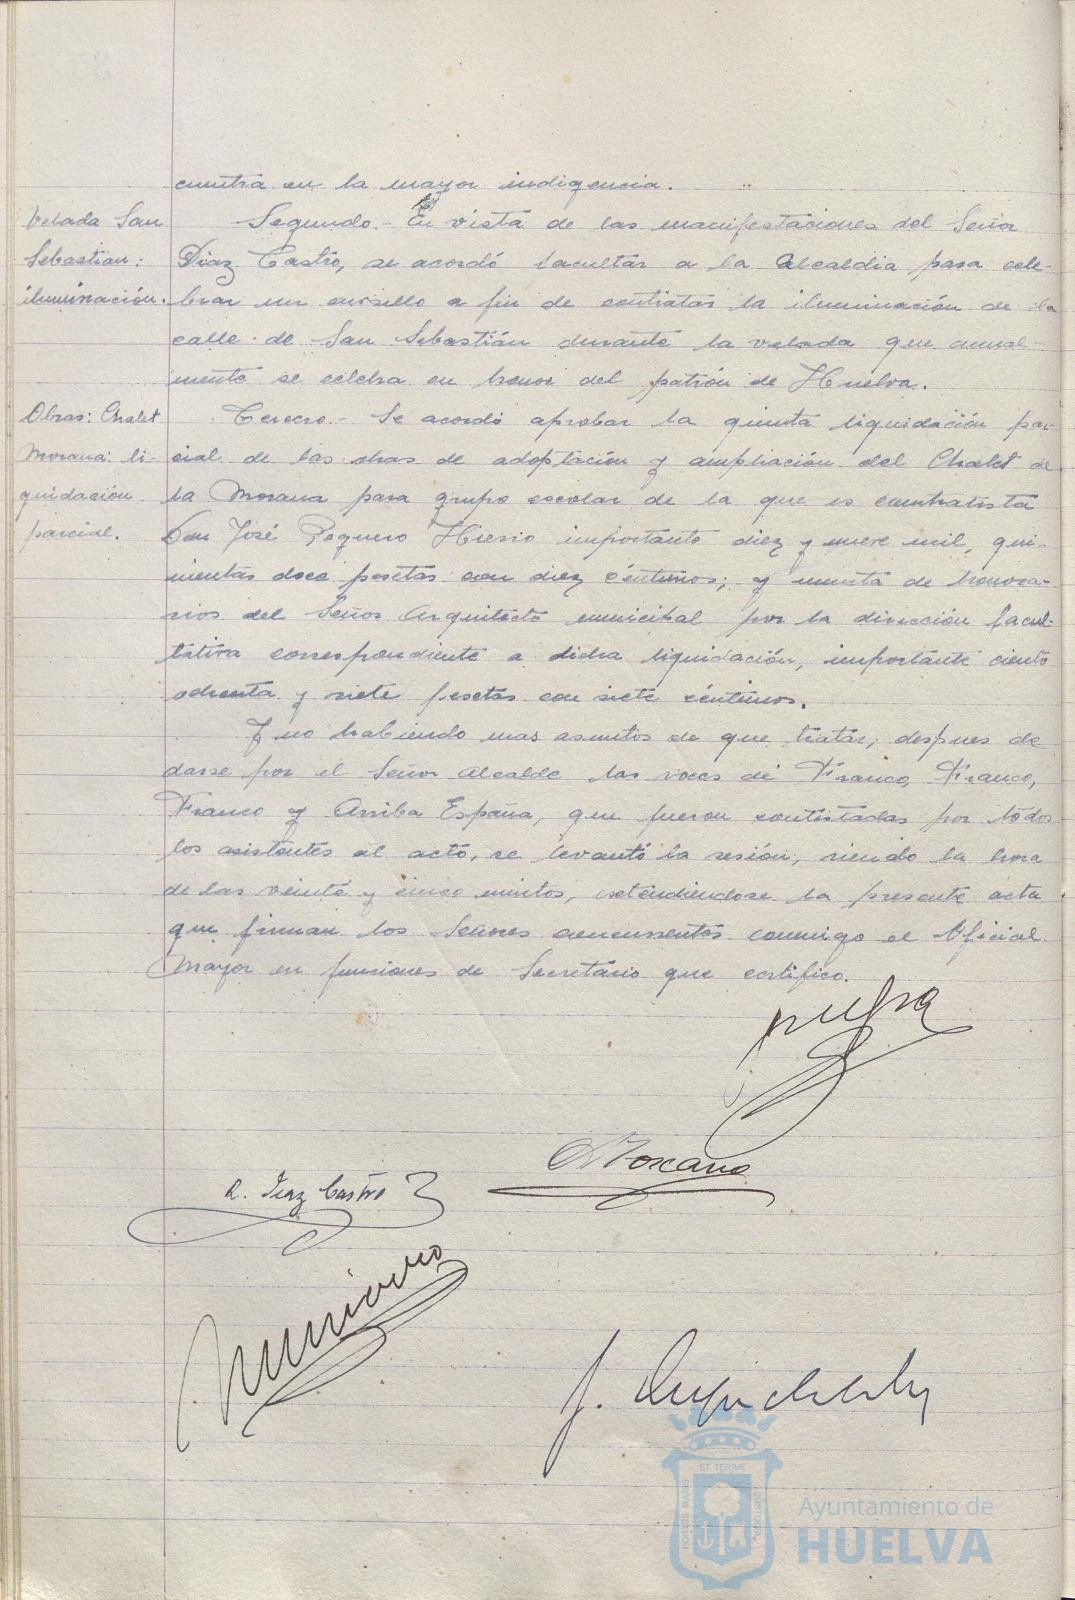 cuentra en la mayor indigencia.
Velada San
Sebastian:
iluminación.
Segundo.- En vista de las manifestaciones del Señor
Diaz Castro, se acordó facultar a la Alcaldia para cele-
brar un cursillo a fin de contratar la iluminación de la
calle de San Sebastián durante la velada que anual-
mente se celebra en honor del patrón de Huelva.
Obras: Chalet
Morana: li-
quidación
parcial.
Tercero.- Se acordó aprobar la quinta liquidación par-
cial de las obras de adaptación y ampliación del Chalet de
la Morana para grupo escolar de la que es contratista
Don José Peguero importante diez y nueve mil, qui-
nientas doce pesetas con diez céntimos; y minuta de honora-
rios del Señor Arquitecto municipal por la dirección facul-
tativa correspondiente a dicha liquidación, importante ciento
ochenta y siete pesetas con siete céntimos.
Y no habiendo mas asuntos de que tratar, despues de
darse por el Señor Alcalde las voces de Franco, Franco,
Franco y Arriba España, que fueron contestadas por todos
los asistentes al acto, se levantó la sesión, siendo la hora
de las veinte y cinco minutos, extendiendose la presente acta
que firman los Señores concurrentes conmigo el Oficial
Mayor en funciones de Secretario que certifico.
Toscano
A. Diaz Castro
ET TERRÆ
PORTUS MARIS
CUSTODIA
Ayuntamiento de
HUELVA